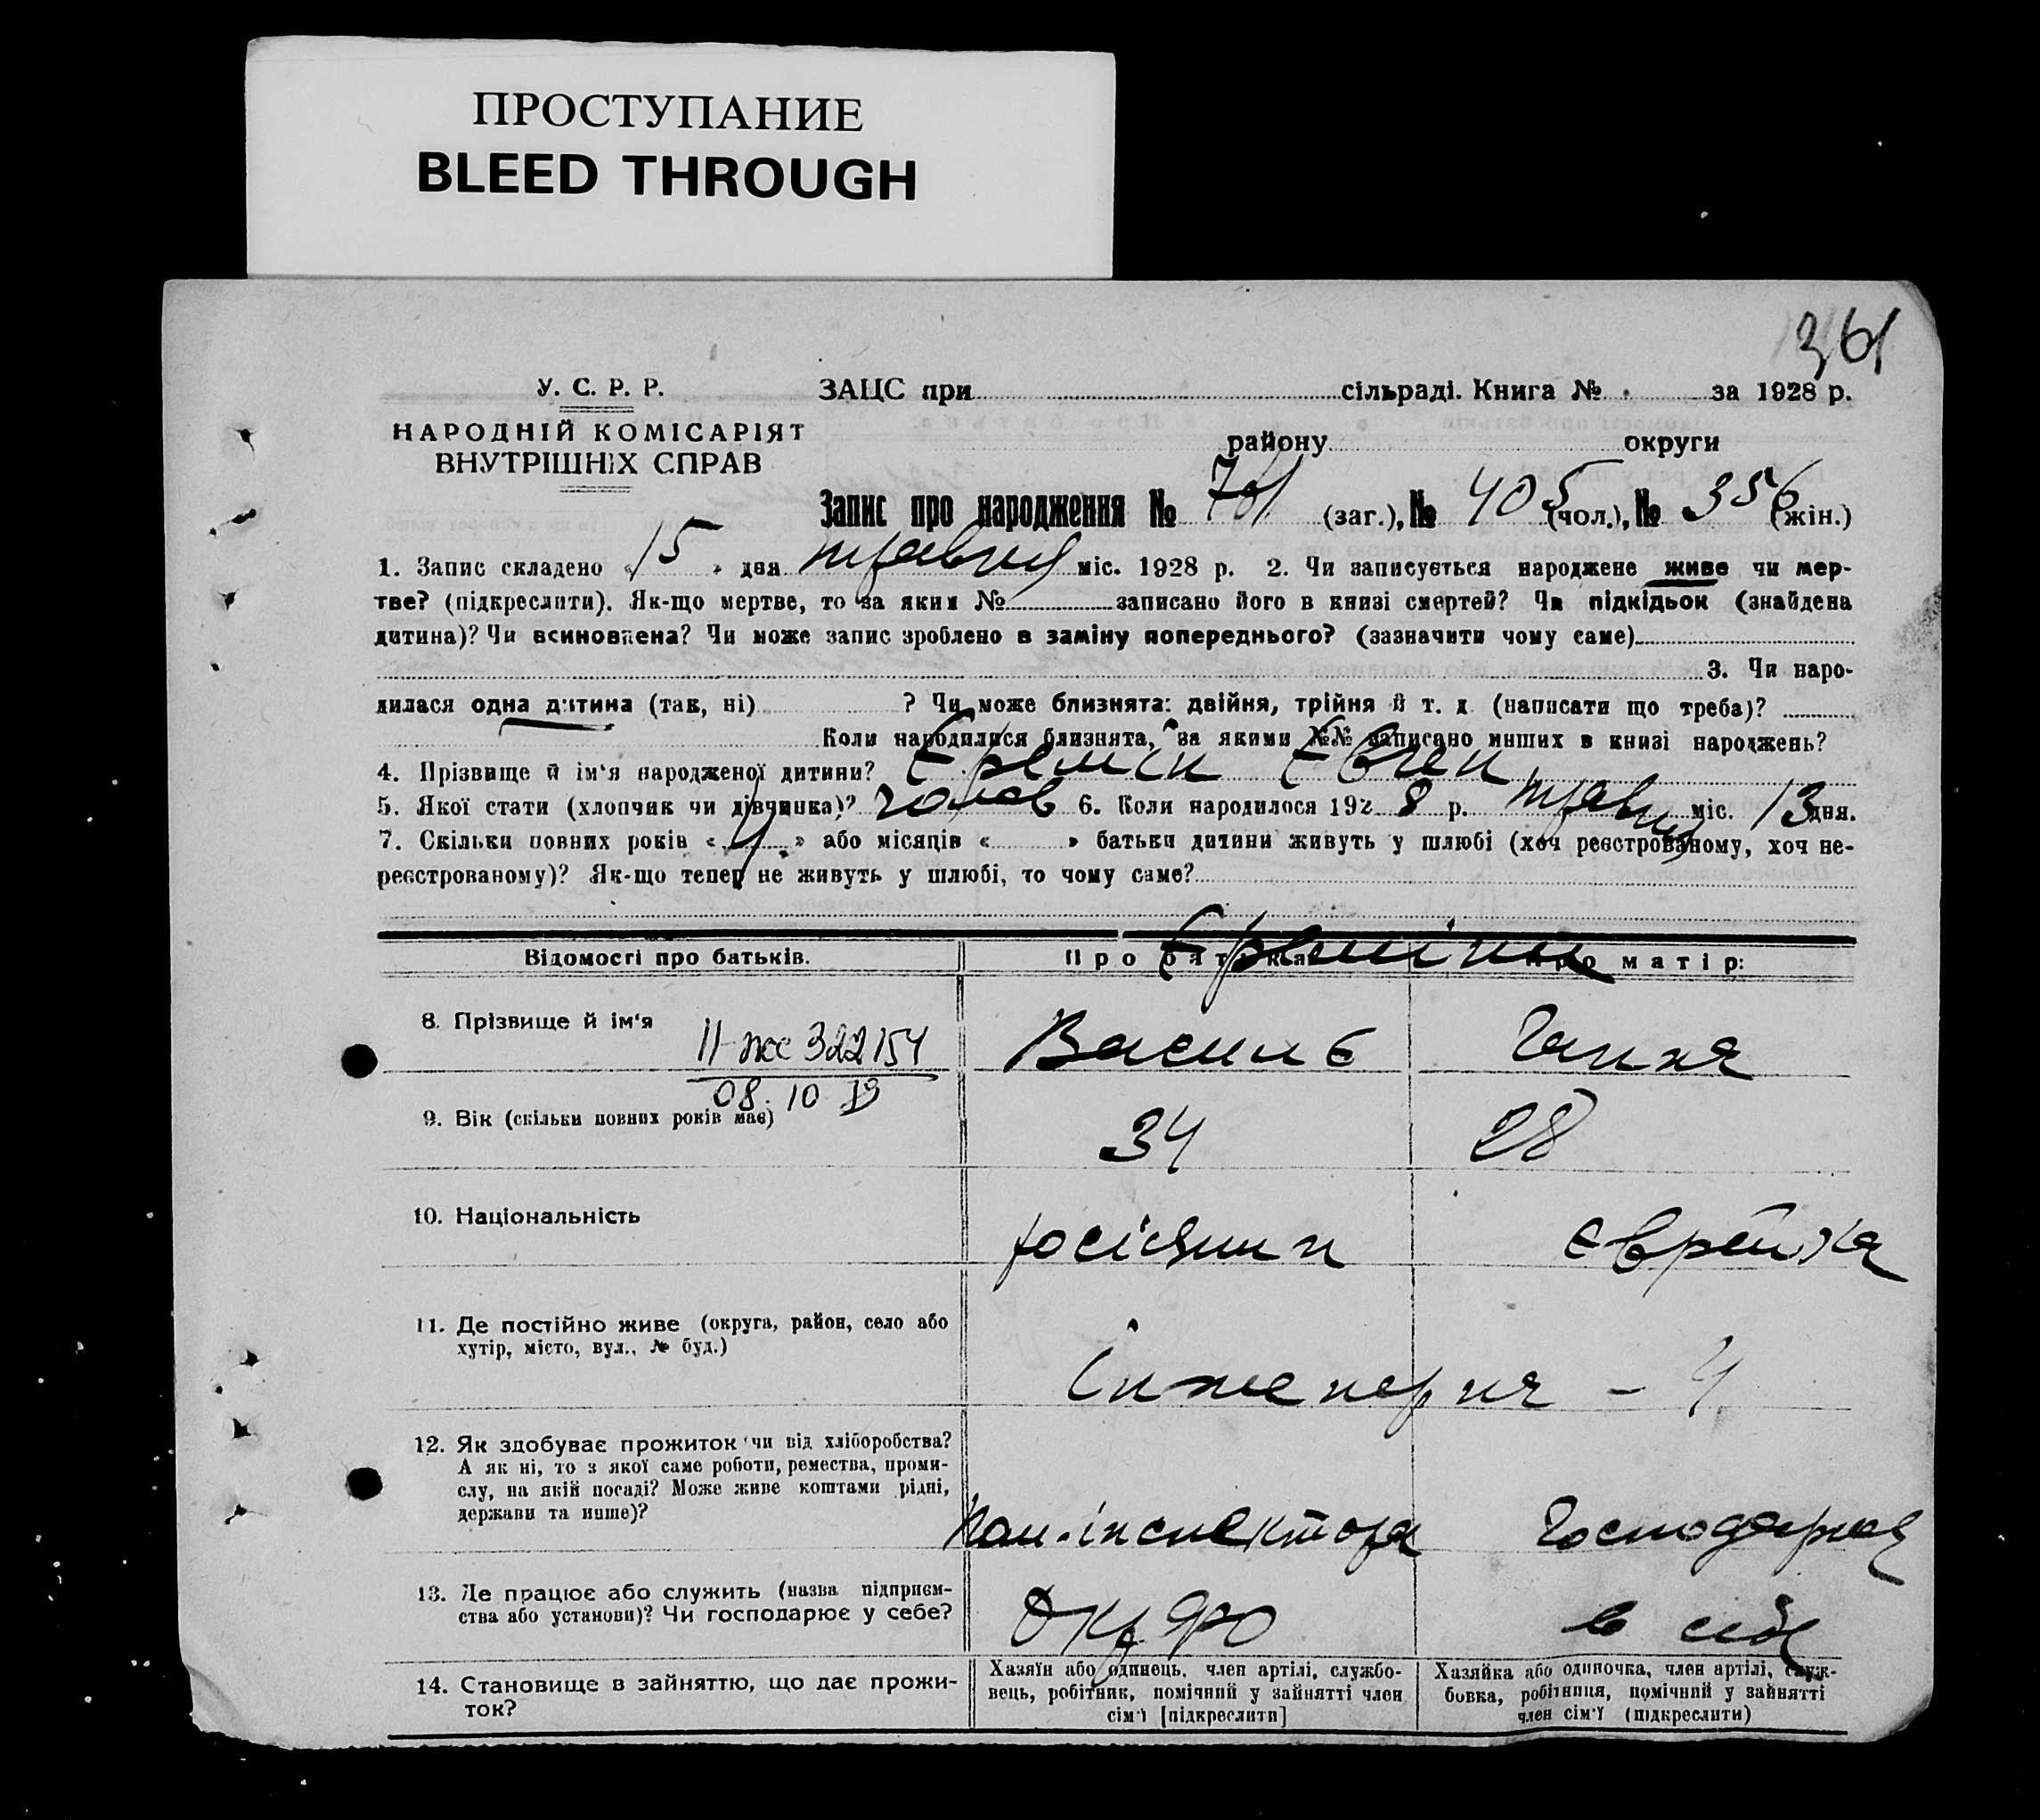 ПРОСТУПАНИЕ
BLEED THROUGH
361
У. С. Р. Р.
НАРОДНІЙ КОМІСАРІЯТ
ВНУТРІШНІХ СПРАВ
ЗАЦС при сільраді. Книга № за 1928 р.
району округи
Запис про народження № 761 (заг.), № 405 (чол.), № 356 (жін.)
1. Запис складено « 15 » дня травня міс. 1928 р. 2. Чи записується народжене живе чи мер-
тве? (підкреслити). Як-що мертве, то за яким № записано його в книзі смертей? Чи підкідьок (знайдена
дитина)? Чи всиновлена? Чи може запис зроблено в заміну попереднього? (зазначити чому саме)
3. Чи наро-
дилася одна дитина (так, ні) ? Чи може близнята: двійня, трійня й т. д. (написати що треба)?
Коли народилися близнята, за якими №№ записано инших в книзі народжень?
4. Прізвище й ім'я народженої дитини? Єрьомін Євген
5. Якої стати (хлопчик чи дівчинка)? чолов 6. Коли народилося 1928 р. травня міс. 13 дня.
7. Скільки повних років « 4 » або місяців « » батьки дитини живуть у шлюбі (хоч реєстрованому, хоч не-
реєстрованому)? Як-що тепер не живуть у шлюбі, то чому саме?
Відомості про батьків. Про батька: Про матір:
Єрьоміни
8. Прізвище й ім'я Василь Ганна
II-жс 322154
08.10
9. Вік (скільки повних років має) 34 28
10. Національність росіянин єврейка
11. Де постійно живе (округа, район, село або
хутір, місто, вул., № буд.)
Інженерня - 4
12. Як здобуває прожиток чи від хліборобства?
А як ні, то з якої саме роботи, ремества, проми-
слу, на якій посаді? Може живе коштами рідні,
держави та инше)?
пом. інспектора господарка
13. Де працює або служить (назва підприєм-
ства або установи)? Чи господарює у себе?
Окр ФО в себе
14. Становище в зайняттю, що дає прожи-
ток?
Хазяїн або одинець, член артілі, службо-
вець, робітник, помічний у зайнятті член
сім'ї [підкреслити]
Хазяйка або одиночка, член артілі, служ-
бовка, робітниця, помічний у зайнятті
член сім'ї (підкреслити)